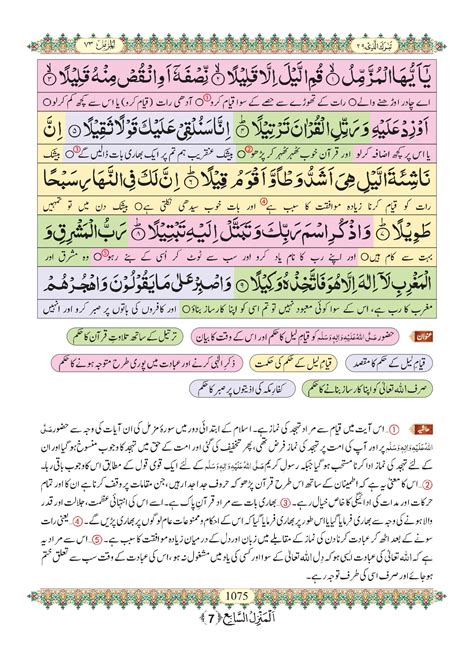 تبٰرک الذی ۲۹
المزمل ۷۳
يٰۤاَيُّهَا الْمُزَّمِّلُ ۙ﴿۱﴾ قُمِ الَّيْلَ اِلَّا قَلِيْلًا ۙ﴿۲﴾ نِّصْفَهٗۤ اَوِ انْقُصْ مِنْهُ قَلِيْلًا ۙ﴿۳﴾
اے چادر اوڑھنے والے ○ رات کے تھوڑے سے حصے کے سوا قیام کرو ① ○ آدھی رات (قیام کرو) یا اس سے کچھ کم کرلو ○
اَوْ زِدْ عَلَيْهِ وَ رَتِّلِ الْقُرْاٰنَ تَرْتِيْلًا ؕ﴿۴﴾ اِنَّا سَنُلْقِيْ عَلَيْكَ قَوْلًا ثَقِيْلًا ﴿۵﴾ اِنَّ
یا اس پر کچھ اضافہ کرلو اور قرآن خوب ٹھہر ٹھہر کر پڑھو ② ○ بیشک عنقریب ہم تم پر ایک بھاری بات ڈالیں گے ③ ○ بیشک
نَاشِئَةَ الَّيْلِ هِيَ اَشَدُّ وَطْاً وَّ اَقْوَمُ قِيْلًا ؕ﴿۶﴾ اِنَّ لَكَ فِي النَّهَارِ سَبْحًا
رات کو قیام کرنا زیادہ موافقت کا سبب ہے ④ اور بات خوب سیدھی نکلتی ہے ○ بیشک دن میں تو تمہیں
طَوِيْلًا ؕ﴿۷﴾ وَ اذْكُرِ اسْمَ رَبِّكَ وَ تَبَتَّلْ اِلَيْهِ تَبْتِيْلًا ؕ﴿۸﴾ رَبُّ الْمَشْرِقِ وَ
بہت سے کام ہیں ○ اور اپنے رب کا نام یاد کرو اور سب سے ٹوٹ کر اسی کے بنے رہو ⑤ ○ وہ مشرق اور
الْمَغْرِبِ لَاۤ اِلٰهَ اِلَّا هُوَ فَاتَّخِذْهُ وَكِيْلًا ﴿۹﴾ وَ اصْبِرْ عَلٰى مَا يَقُوْلُوْنَ وَ اهْجُرْهُمْ
مغرب کا رب ہے، اس کے سوا کوئی معبود نہیں تو تم اسی کو اپنا کارساز بناؤ ○ اور کافروں کی باتوں پر صبر کرو اور انہیں
عنوان
حضور صَلَّی اللهُ عَلَیْہِ وَاٰلِہٖ وَسَلَّم کو قیامِ لیل کا حکم اور اس کے وقت کا بیان
ترتیل کے ساتھ تلاوتِ قرآن کا حکم
قیامِ لیل کے حکم کا مقصد
قیامِ لیل کے حکم کی حکمت
ذکرِ الٰہی کرنے اور عبادت میں پوری طرح متوجہ ہونے کا حکم
صرف اللہ تعالیٰ کو اپنا کارساز بنانے کا حکم
کفارِ مکہ کی اذیتوں پر صبر کا حکم
حاشیہ
①۔ اس آیت میں قیام سے مراد تہجد کی نماز ہے۔ اسلام کے ابتدائی دور میں سورۂ مزمل کی ان آیات کی وجہ سے حضور صَلَّی
اللهُ عَلَیْہِ وَاٰلِہٖ وَسَلَّم پر اور آپ کی امت پر تہجد کی نماز فرض تھی، پھر تخفیف کی گئی اور امت کے حق میں تہجد کا وجوب منسوخ ہوگیا اور ان
کے لئے تہجد کی نماز ادا کرنا مستحب ہوگیا جبکہ رسول کریم صَلَّی اللهُ عَلَیْہِ وَاٰلِہٖ وَسَلَّم کیلئے ایک قوی قول کے مطابق اس کا وجوب باقی رہا۔
②۔ اس کا معنی یہ ہے کہ اطمینان کے ساتھ اس طرح قرآن پڑھو کہ حروف جدا جدا رہیں، جن مقامات پر وقف کرنا ہے ان کا اور تمام
حرکات اور مدات کی ادائیگی کا خاص خیال رہے۔ ③۔ بھاری بات سے مراد قرآنِ پاک ہے۔ اسے اس کی انتہائی عظمت، جلالت اور قدر
والا ہونے کی وجہ سے بھاری فرمایا گیا یا اس طور پر بھاری فرمایا گیا کہ اس کے احکام و ممنوعات عام لوگوں پر بھاری پڑیں گے۔ ④۔ یعنی رات
کو سونے کے بعد اٹھنے اور عبادت کرنا دن کی نماز کے مقابلے میں زبان اور دل کے درمیان زیادہ موافقت کا سبب ہے۔ ⑤۔ اس سے مراد یہ
ہے کہ اللہ تعالیٰ کی عبادت ایسی ہو کہ دل اللہ تعالیٰ کے سوا اور کسی کی یاد میں مشغول نہ ہو، اس کی عبادت کے وقت سب سے تعلق ختم
ہو جائے اور صرف اسی کی طرف توجہ رہے۔
1075
اَلْمَنْزِلُ السَّابِعُ ﴿7﴾